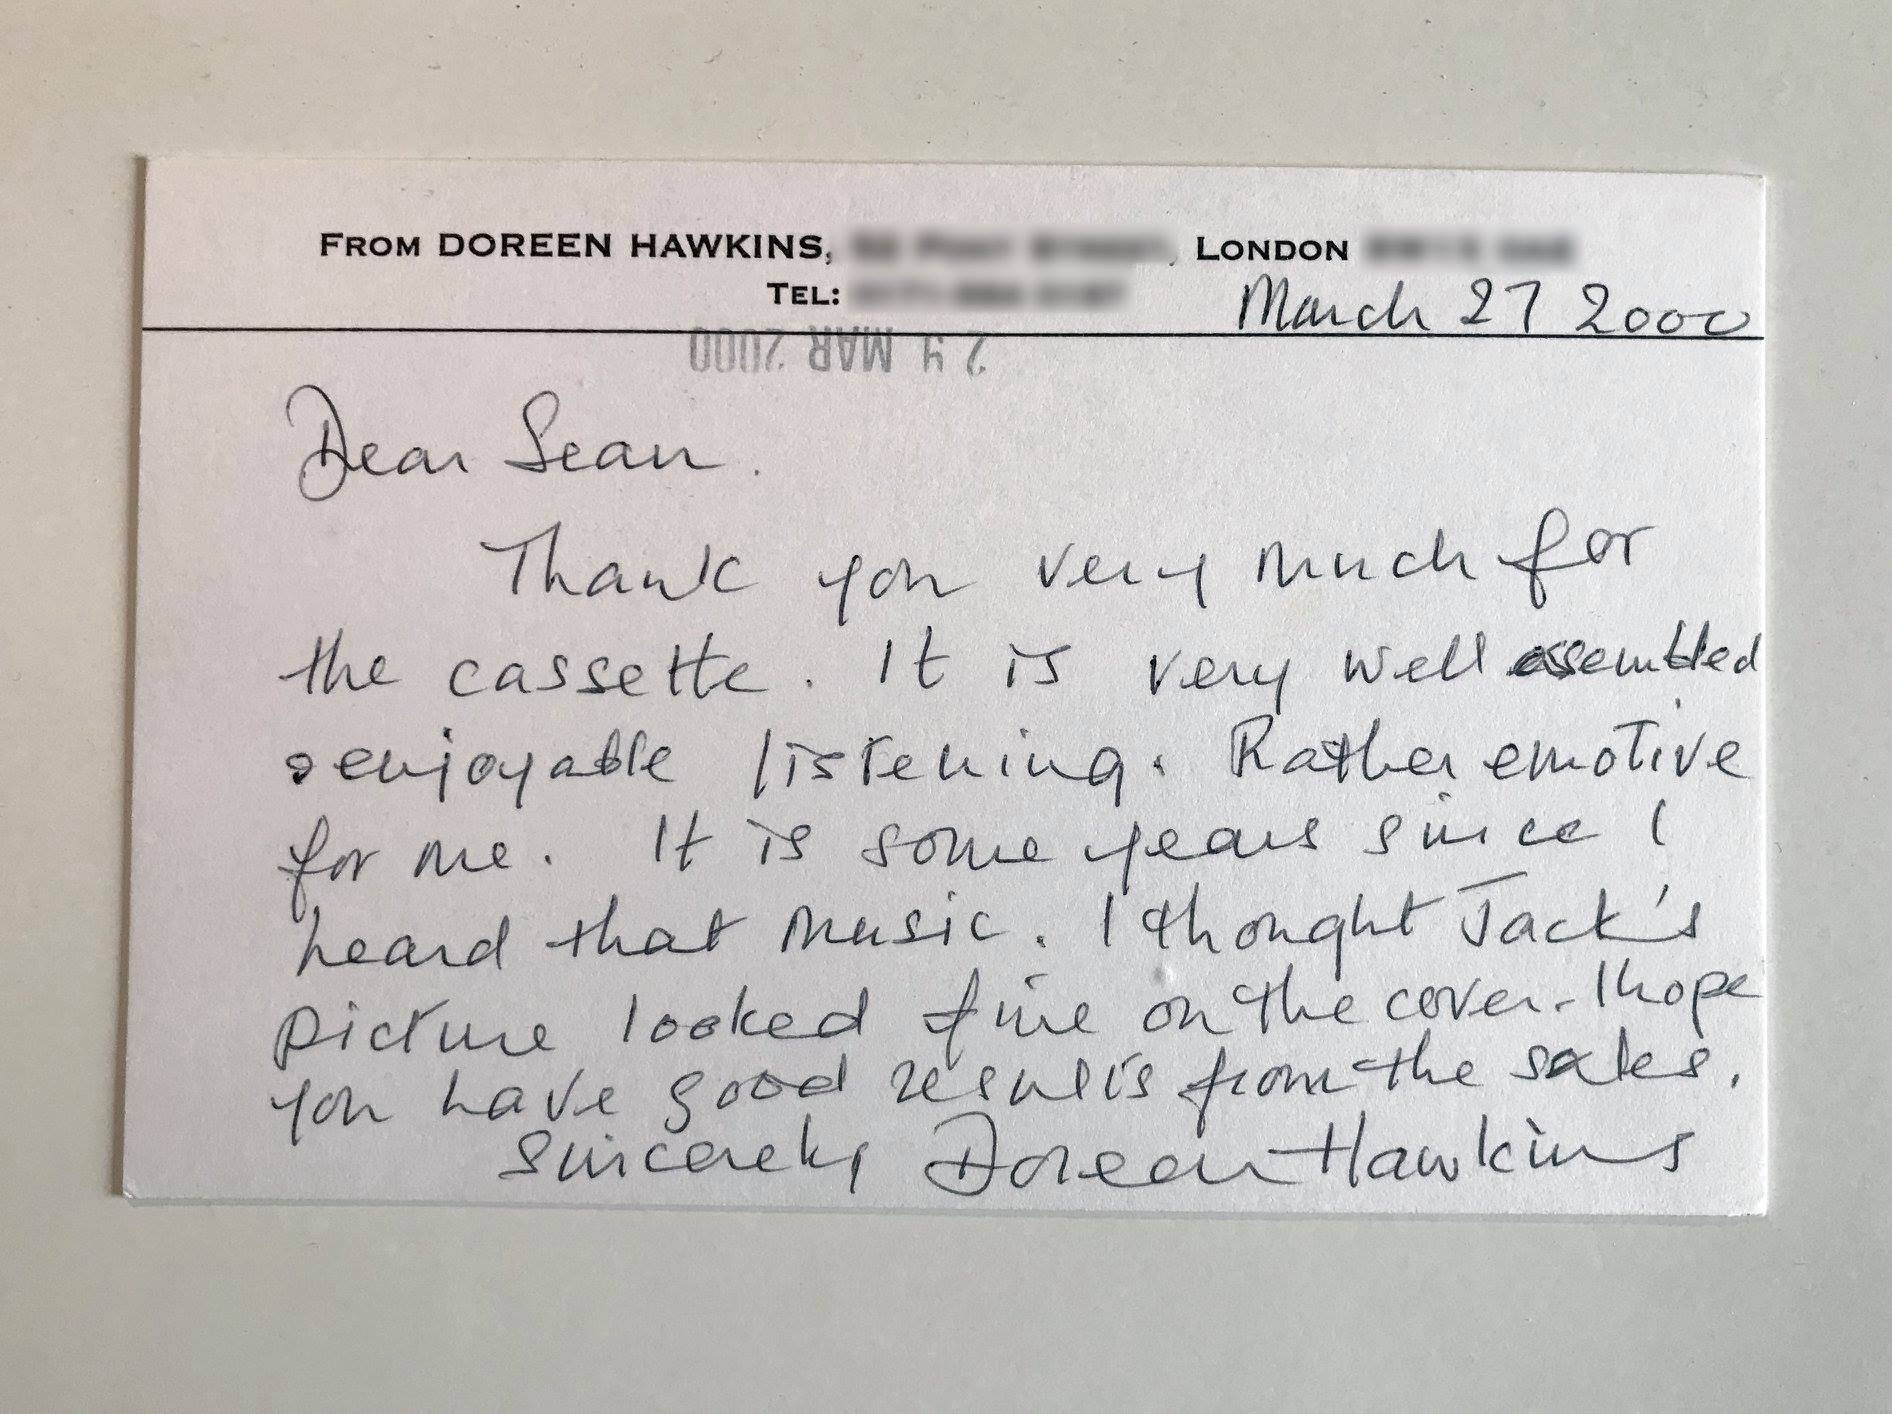 FROM DOREEN HAWKINS, LONDON
TEL:
March 27 2000
MAR 2000
Dear Sean.
Thank you very much for
the cassette. It is very well assembled
& enjoyable listening. Rather emotive
for me. It is some years since I
heard that music. I thought Jack's
picture looked fine on the cover. I hope
you have good results from the sales.
Sincerely Doreen Hawkins